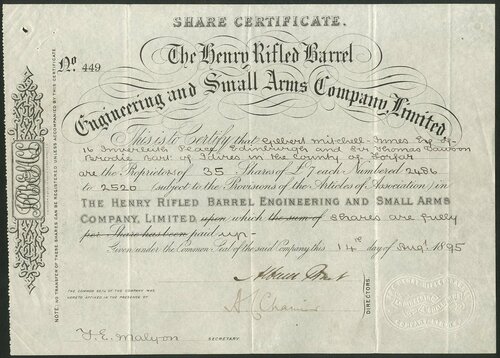 SHARE CERTIFICATE.
No. 449
The Henry Rifled Barrel
Engineering and Small Arms Company, Limited
This is to Certify that Gilbert Mitchell-Innes Esq of
16 Inverleith Place Edinburgh and Sir Thomas Dawson
Brodie Bart of Idvies in the County of Forfar
are the Proprietors of 35 Shares of £7 each Numbered 2486
to 2520 (subject to the Provisions of the Articles of Association) in
THE HENRY RIFLED BARREL ENGINEERING AND SMALL ARMS
COMPANY, LIMITED, upon which the sum of shares are fully
per Share has been paid up-
Given under the Common Seal of the said Company this 14th day of Augt 1895
THE COMMON SEAL OF THE COMPANY WAS
HERETO AFFIXED IN THE PRESENCE OF
DIRECTORS.
T. E. Malyon
SECRETARY.
NOTE, NO TRANSFER OF THESE SHARES CAN BE REGISTERED UNLESS ACCOMPANIED BY THIS CERTIFICATE.